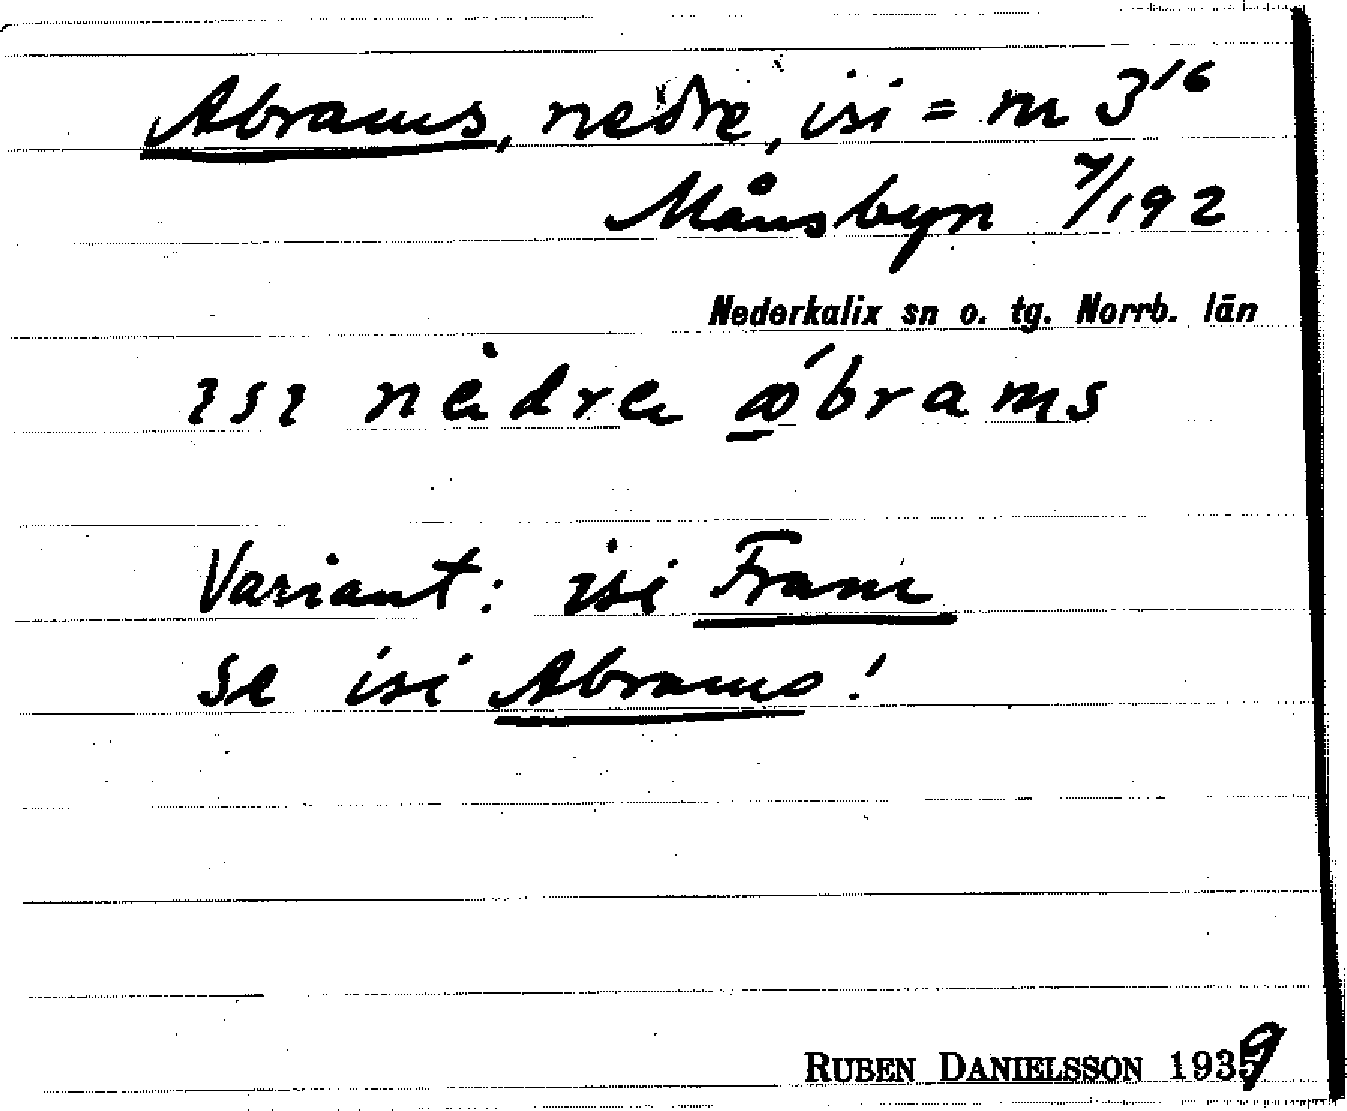 Abrams, nedre, isi = m 3¹⁶
Månsbyn 7/192
Nederkalix sn o. tg. Norrb. län
ısı nèdre ábrams
Variant: isi Fram
Se isi Abrams!
RUBEN DANIELSSON 1939